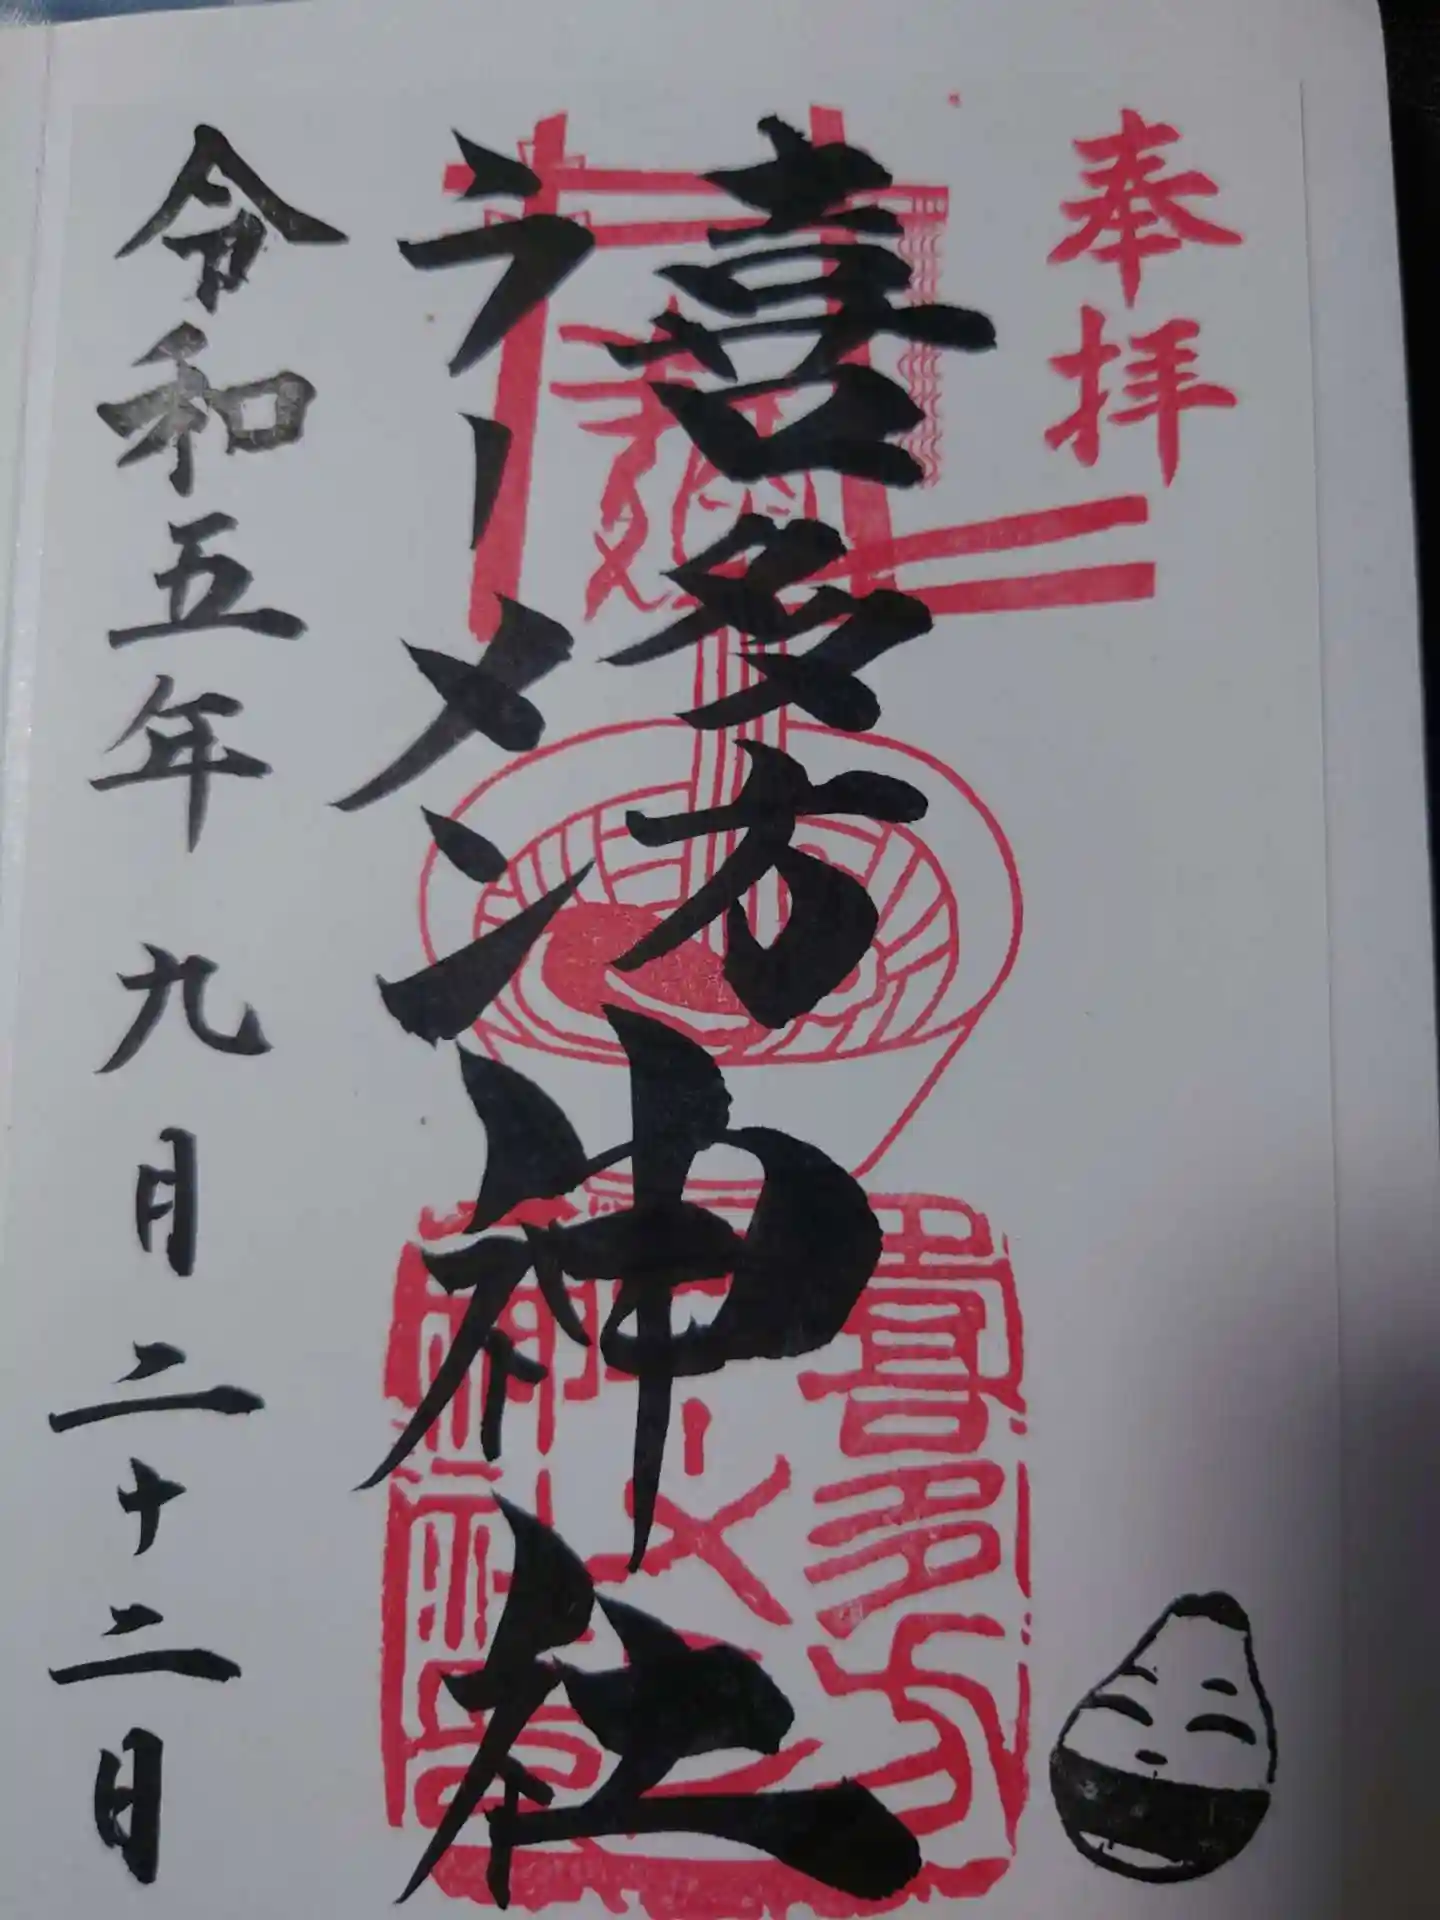 奉拝
喜多方
ラーメン神社
令和五年九月二十二日
喜多方
ラーメン
神社